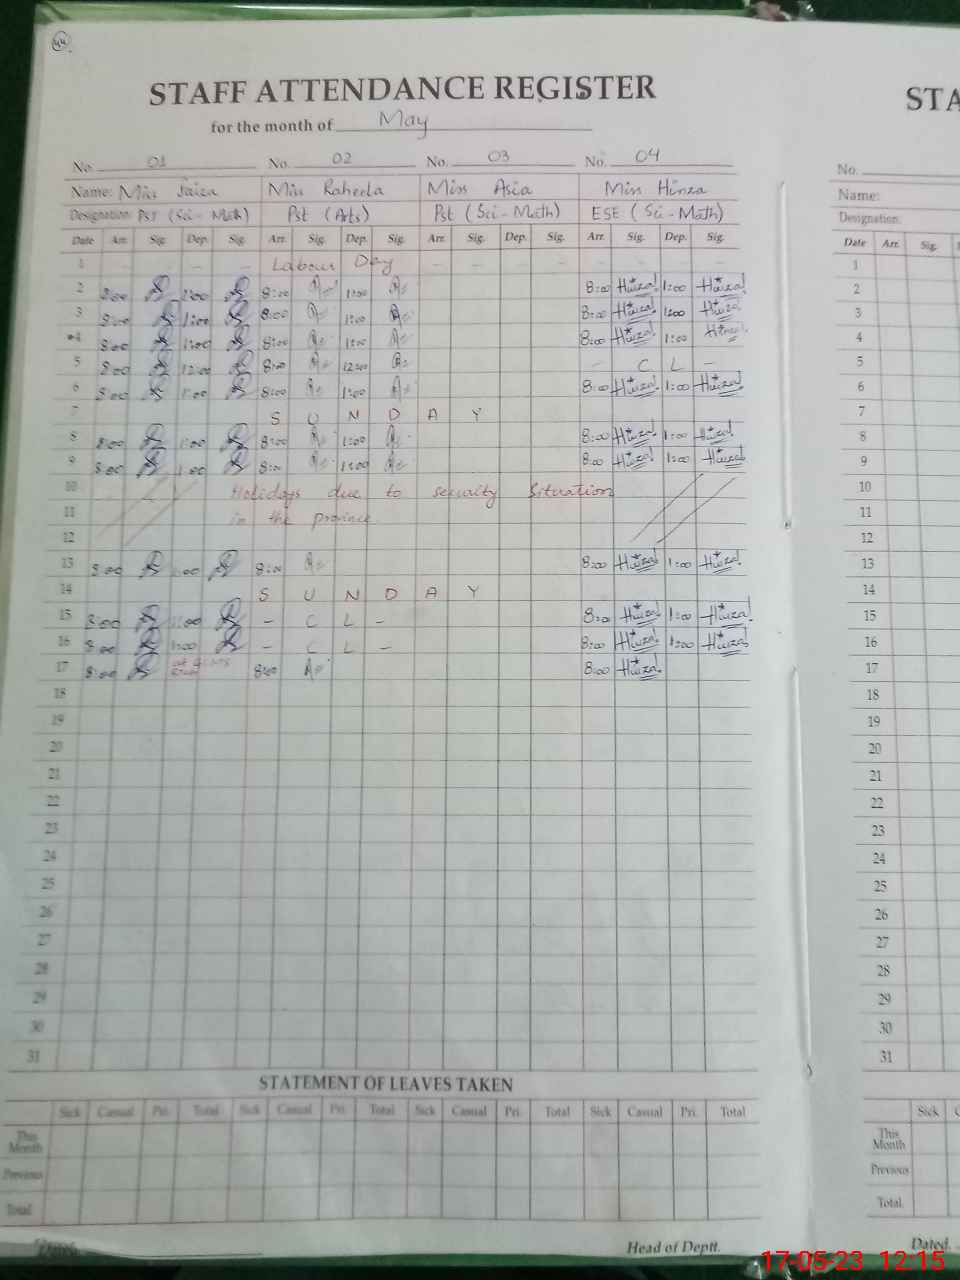 44
STAFF ATTENDANCE REGISTER
STA
for the month of May
No. 01 No. 02 No. 03 No. 04
No.
Name: Miss Faiza Miss Raheela Miss Asia Miss Hinza
Name:
Designation: Pst (Sci - Math) Pst (Arts) Pst (Sci - Math) ESE (Sci - Math)
Designation:
Date Arr. Sig. Dep. Sig. Arr. Sig. Dep. Sig. Arr. Sig. Dep. Sig. Arr. Sig. Dep. Sig.
Date Arr. Sig.
1 - - - - Labour Day - - - - - - - -
1
2 8:00 1:00 8:00 1:00 8:00 Hinza 1:00 Hinza
2
3 8:00 1:00 8:00 1:00 8:00 Hinza 1:00 Hinza
3
4 8:00 1:00 8:00 1:00 8:00 Hinza 1:00 Hinza
4
5 8:00 12:00 8:00 12:00 - C L -
5
6 8:00 1:00 8:00 1:00 8:00 Hinza 1:00 Hinza
6
7 S U N D A Y
7
8 8:00 1:00 8:00 1:00 8:00 Hinza 1:00 Hinza
8
9 8:00 1:00 8:00 1:00 8:00 Hinza 1:00 Hinza
9
10 Holidays due to security Situation
10
11 in the province
11
12
12
13 8:00 1:00 8:00 8:00 Hinza 1:00 Hinza
13
14 S U N D A Y
14
15 8:00 1:00 - C L - 8:00 Hinza 1:00 Hinza
15
16 8:00 1:00 - C L - 8:00 Hinza 1:00 Hinza
16
17 8:00 8:00 8:00 Hinza
17
18
18
19
19
20
20
21
21
22
22
23
23
24
24
25
25
26
26
27
27
28
28
29
29
30
30
31
31
STATEMENT OF LEAVES TAKEN
Sick Casual Pri. Total Sick Casual Pri. Total Sick Casual Pri. Total Sick Casual Pri. Total
Sick
This Month
This Month
Previous
Previous
Total
Total
Dated.
Head of Deptt.
Dated.
17-05-23 12:15